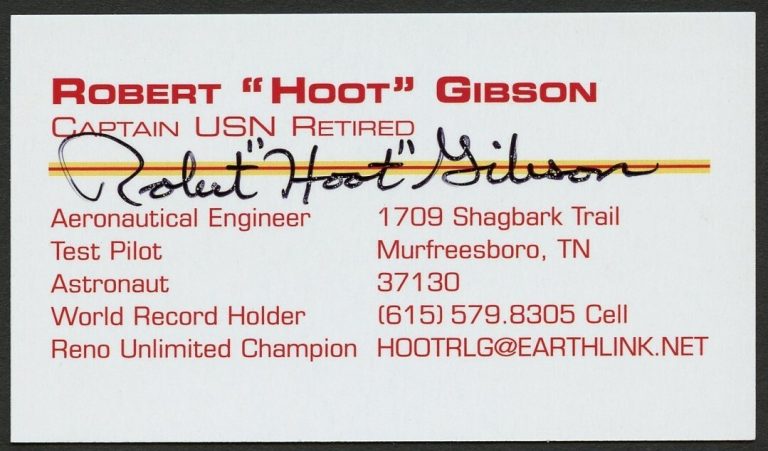 ROBERT "HOOT" GIBSON
CAPTAIN USN RETIRED
Robert "Hoot" Gibson
Aeronautical Engineer
Test Pilot
Astronaut
World Record Holder
Reno Unlimited Champion
1709 Shagbark Trail
Murfreesboro, TN
37130
(615) 579.8305 Cell
HOOTRLG@EARTHLINK.NET